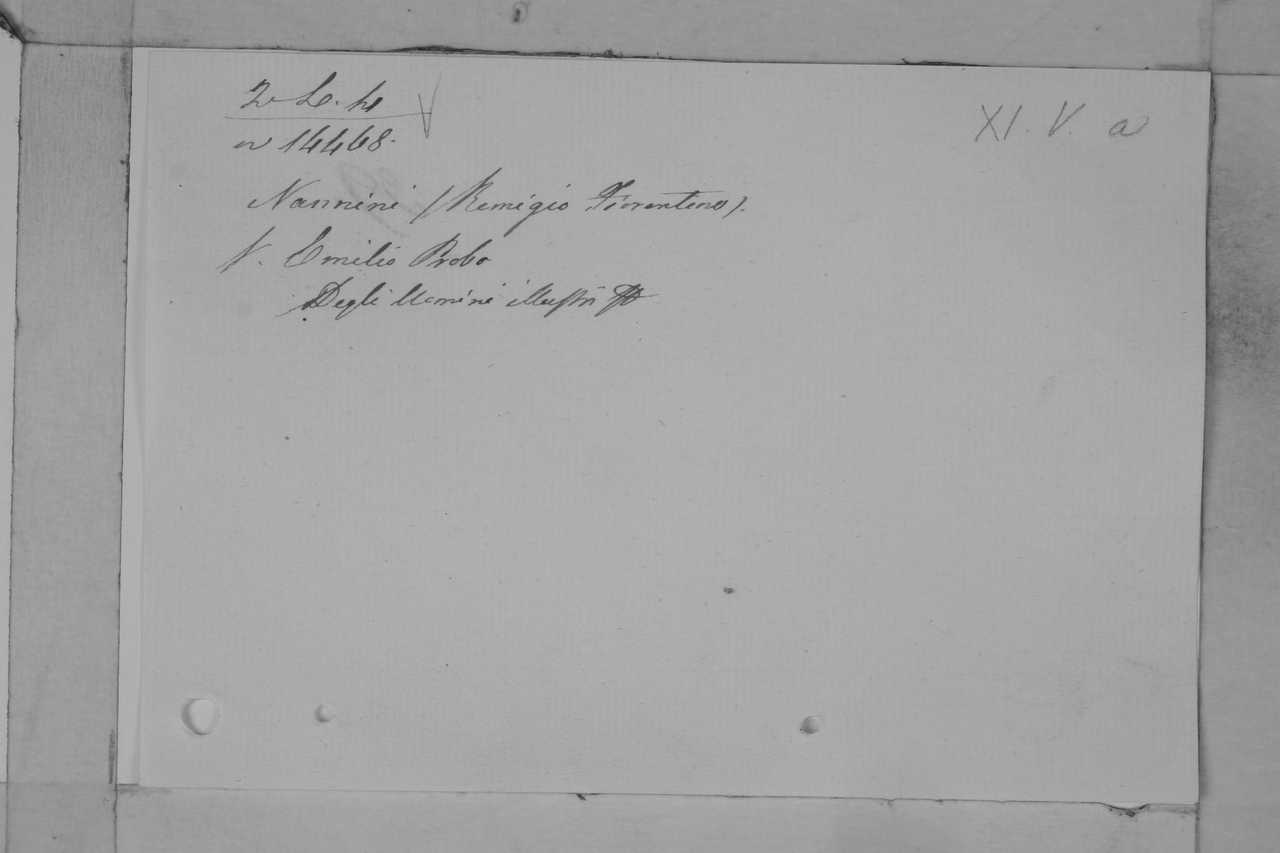 2 L. h V
n 14468.
XI. V. a
Nannini (Remigio Fiorentino).
V. Emilio Probo
Degli Uomini illustri